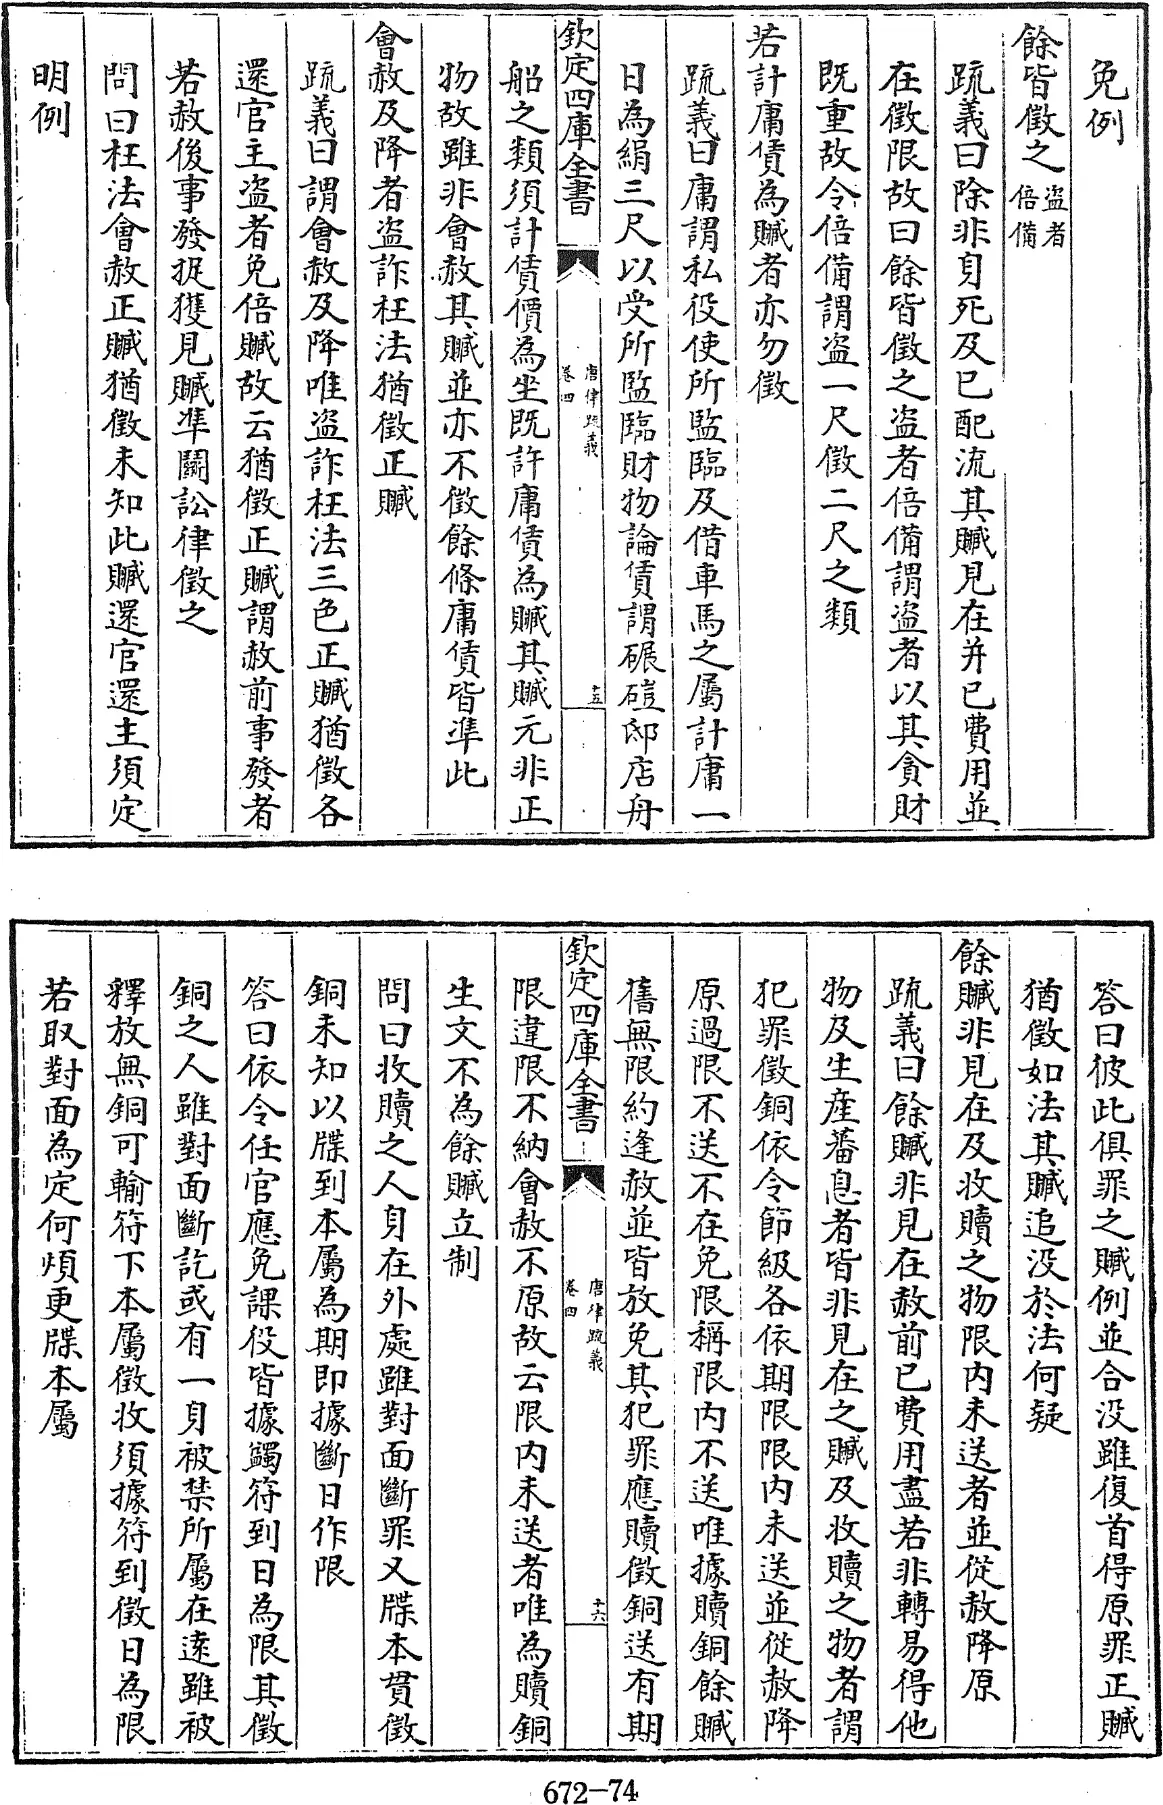 免例
餘皆徵之盜者倍備
疏義曰除非身死及已配流其贓見在并已費用並
在徵限故曰餘皆徵之盜者倍備謂盜者以其貪財
既重故令倍備謂盜一尺徵二尺之類
若計庸賃為贓者亦勿徵
疏義曰庸謂私役使所監臨及借車馬之屬計庸一
日為絹三尺以受所監臨財物論賃謂碾磑邸店舟
欽定四庫全書 唐律疏義 卷四 十五
船之類須計賃價為坐既許庸賃為贓其贓元非正
物故雖非會赦其贓並亦不徵餘條庸賃皆準此
會赦及降者盜詐枉法猶徵正贓
疏義曰謂會赦及降唯盜詐枉法三色正贓猶徵各
還官主盜者免倍贓故云猶徵正贓謂赦前事發者
若赦後事發捉獲見贓準鬭訟律徵之
問曰枉法會赦正贓猶徵未知此贓還官還主須定
明例
答曰彼此俱罪之贓例並合没雖復首得原罪正贓
猶徵如法其贓追没於法何疑
餘贓非見在及收贖之物限内未送者並從赦降原
疏義曰餘贓非見在赦前已費用盡若非轉易得他
物及生產蕃息者皆非見在之贓及收贖之物者謂
犯罪徵銅依令節級各依期限限内未送並從赦降
原過限不送不在免限稱限内不送唯據贖銅餘贓
舊無限約逢赦並皆放免其犯罪應贖徵銅送有期
欽定四庫全書 唐律疏義 卷四 十六
限違限不納會赦不原故云限内未送者唯為贖銅
生文不為餘贓立制
問曰收贖之人身在外處雖對面斷罪又牒本貫徵
銅未知以牒到本屬為期即據斷日作限
答曰依令任官應免課役皆據蠲符到日為限其徵
銅之人雖對面斷訖或有一身被禁所屬在遠雖被
釋放無銅可輸符下本屬徵收須據符到徵日為限
若取對面為定何煩更牒本屬
672-74